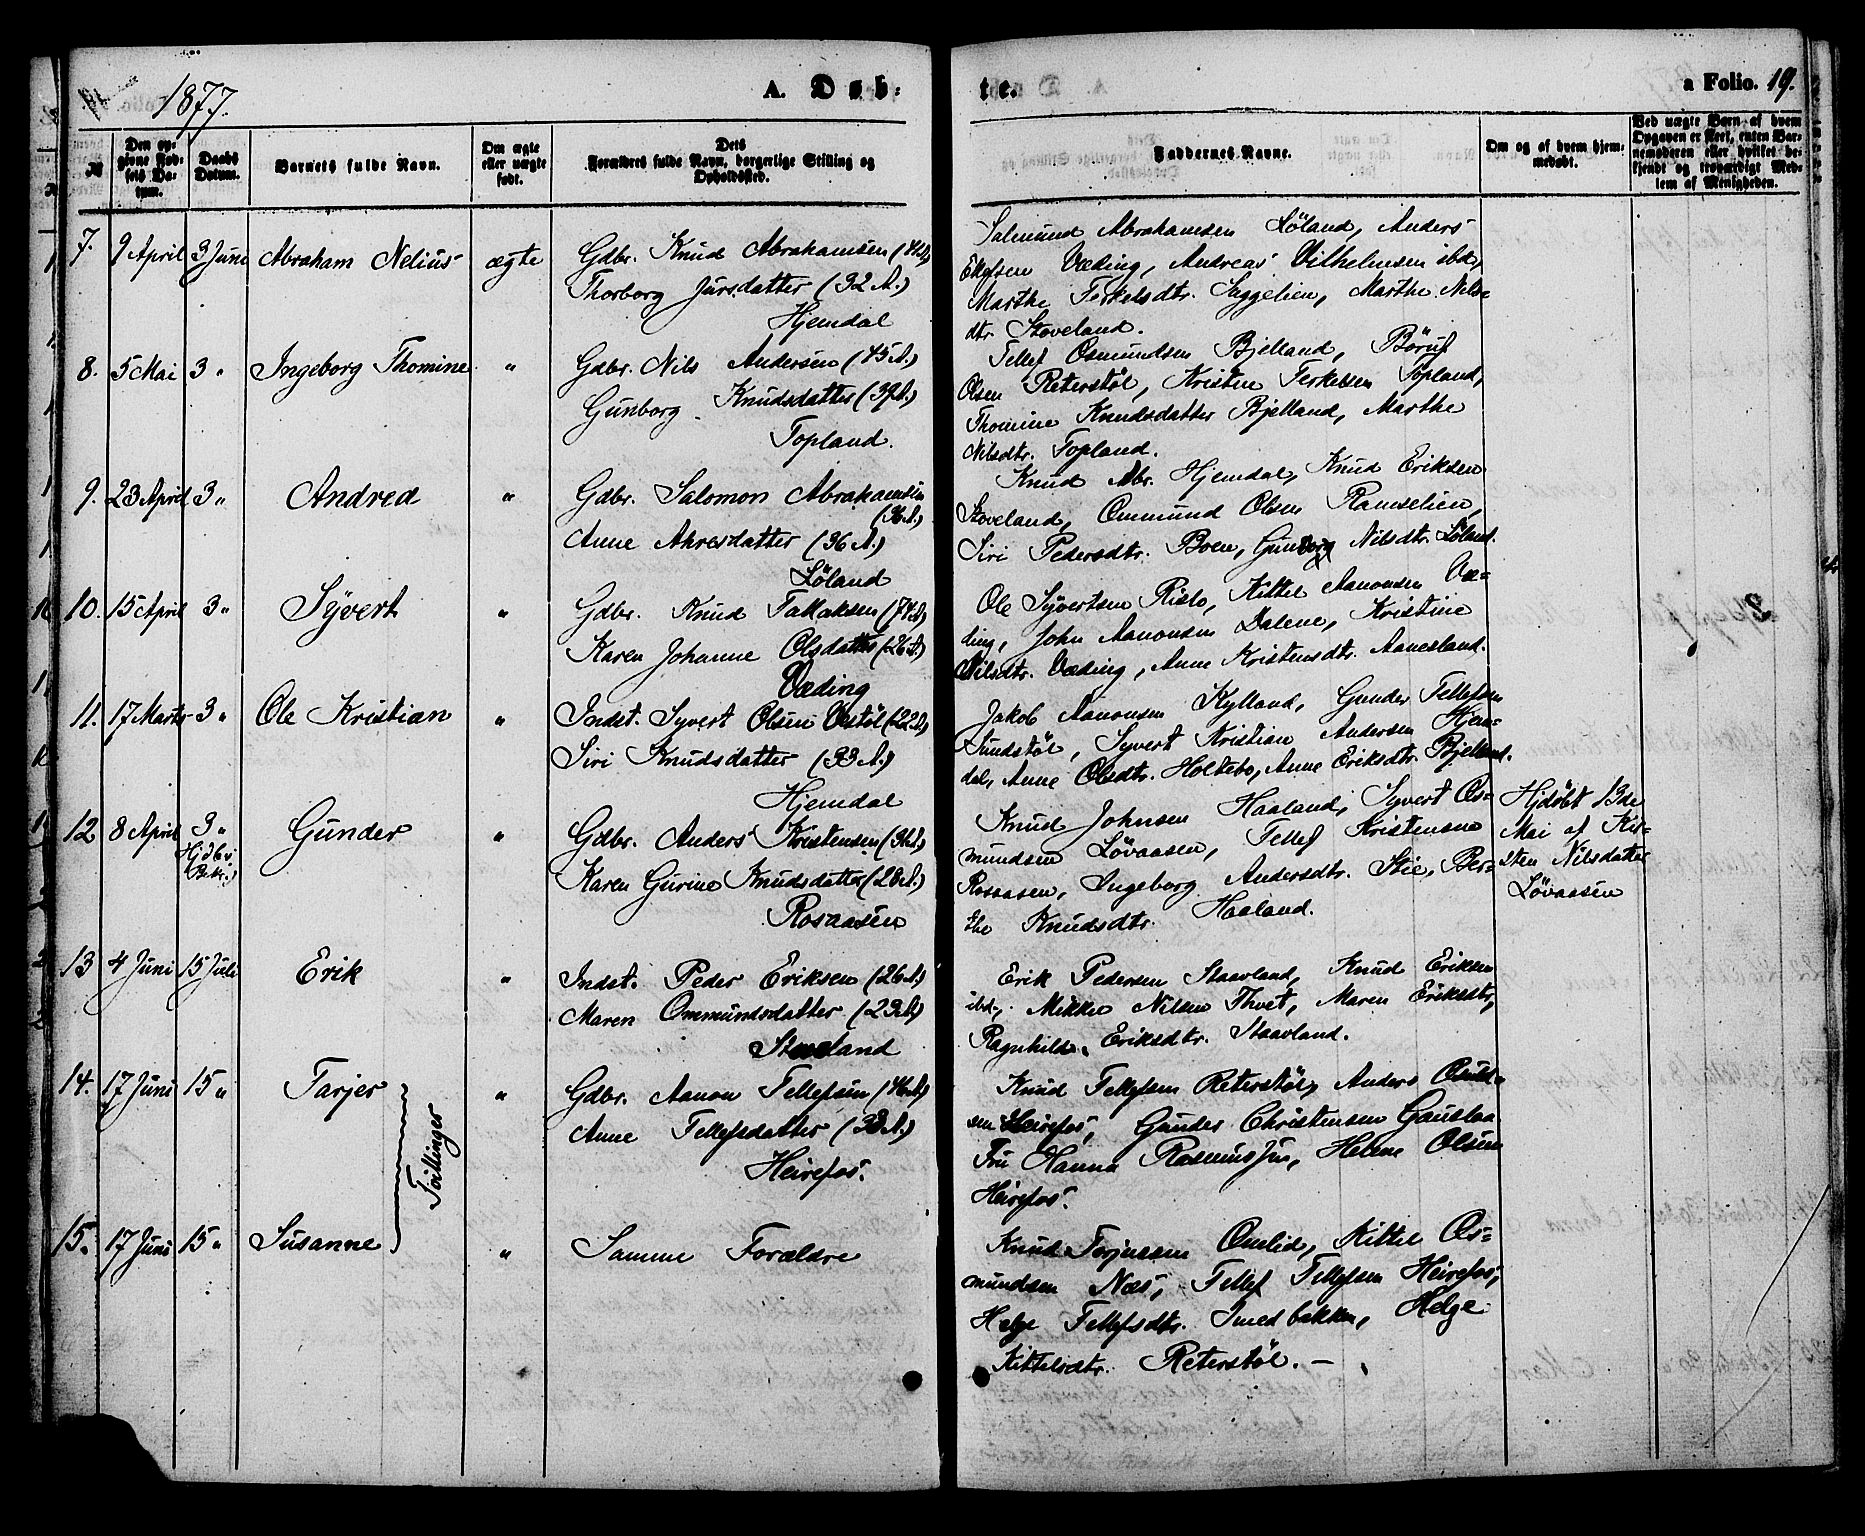 1877.
A. Døb:
te.
a Folio. 19.
№
Den opgivne Fødsels Datum.
Daabs Datum.
Barnets fulde Navn.
Om ægte eller uægte født.
Dets Forældres fulde Navn, borgerlige Stilling og Opholdssted.
Faddernes Navne.
Om og af hvem hjemmedøbt.
Ved uægte Børn af hvem Opgaven er skeet, enten Barnemoderen eller hvilket bekjendt og troværdigt Medlem af Menigheden.
7. 9 April 3 Juni Abraham Nelius ægte
Gdbr. Knud Abrahamsen
Thorborg Jursdatter (32 A.)
Hjemdal
Salmund Abrahamsen Løland, Anders
Væding, Andreas Vilhelmsen ibd,
Marthe Terkelsdtr. Marthe Nils-
dtr. Stoveland.
8. 5 Mai 3 " Ingeborg Thomine "
Gdbr. Nils Andersen (45 A.)
Gunborg Knudsdatter (39 A.)
Topland.
Tellef Osmundsen Bjelland, Børuf
Olsen Reterstøl, Kristen Terkelsen Topland,
Thomine Knudsdatter Bjelland, Marthe
Nilsdtr. Topland.
9. 23 April 3 " Andred "
Gdbr. Salomon Abrahamsen
(36 A.)
Anne Ahresdatter (36 A.)
Løland
Knud Abr. Hjemdal, Knud Eriksen
Stoveland, Ommund Olsen Ramselien,
Siri Pedersdtr. Boen, Gunborg Nilsdtr. Løland.
10. 15 April 3 " Syvert "
Gdbr. Knud Tallaksen (74 A.)
Karen Johanne Olsdatter (26 A.)
Væding
Ole Syvertsen Rislo, Kittel Aanonsen Væ-
ding, John Aanonsen Dalene, Kristine
Nilsdtr. Væding, Anne Kristensdtr. Aanesland.
11. 17 Marts 3 " Ole Kristian "
Indst. Syvert Olsen (22 A.)
Siri Knudsdatter (33 A.)
Hjemdal
Jakob Aanonsen Kylland, Gunder Tellefsen
Sundstøl, Syvert Kristian Andersen Hjem-
dal, Anne Olsdtr. Holtebo, Anne Eriksdtr. Bjelland.
12 8 April 3 " Gunder "
Gdbr. Anders Kristensen (36 A.)
Karen Gurine Knudsdatter (28 A.)
Rosaasen
Knud Johnsen Haaland, Syvert Os-
mundsen Løvaasen, Tellef Kristensen
Rosaasen, Ingeborg Andersdtr. Stie, Ber-
the Knudsdtr. Haaland.
Hjdøbt 13de
Mai af Kir-
sten Nilsdatter
Løvaasen
13 4 Juni 15 Juli Erik "
Indst. Peder Eriksen (26 A.)
Maren Ommundsdatter (23 A.)
Staveland
Erik Pedersen Staavland, Knud Eriksen
ibd., Mikkel Nilsen Thvet, Maren Eriksdtr,
Ragnhild Eriksdtr. Staavland.
14. 17 Juni 15 " Tarjer "
Tvillinger
Gdbr. Aanon Tellefsen (46 A.)
Anne Tellefsdatter (38 A.)
Heirefos.
Knud Tellefsen Reterstøl, Anders
sen Heirefos, Gunder Christensen Gauslaa
Fru Hanna Helene Olsen
Heirefos.
15. 17 Juni 15 " Susanne "
Samme Forældre
Knud Terjussen Omlid, Kittel Os-
mundsen Næs, Tellef Tellefsen Heirefos,
Helge Tellefsdtr. Smedbakken, Helge
Kittelsdtr. Reterstøl. —